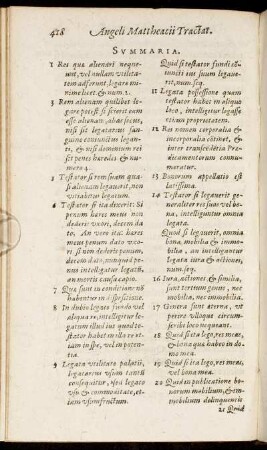 428 Angeli Mattheacii Tractat.
SVMMARIA.
1 Res quæ alienari neque-
unt, vel nullam vtilita-
tem adferunt, legare mi-
nime licet. & num. 2.
3 Rem alienam quilibet lega-
re potest si sciuerit eam
esse alienam, aliàs secus,
nisi sit legatarius san-
guine coniunctus legan-
ti, & nisi dominium rei
sit penes heredes & nu-
mero 4.
5 Testator si rem suam qua-
si alienam legauerit, non
vitiabitur legatum.
6 Testator si ita dixerit: Si
penum heres meus non
dederit vxori, decem do
dato. An vero ita: heres
meus penum dato vxo-
ri. si non dederis penum,
decem dato, nunquid pe-
num intelligatur legata,
an mortis causa capio.
7 Quæ sunt in conditione nõ
habentur in dispositione.
8 In dubio legato fundo vel
aliqua re, intelligitur le-
gatum illud ius quod te-
stator habet in illa re e-
tiam in spe, vel in poten-
tia.
9 Legata vtilitate palatii,
legatarius vsum tantũ
consequitur, ipsa legato
vsu & commoditate, et-
iam vsumfructum.
Quid si testator fundi di-
uincti eius suum legaue-
rit, num. seq.
11 Legata possessione quam
testator habet in aliquo
loco, intelligitur legasse
etiam proprietatem.
12 Res nomen corporalia &
incorporalia cõtinet, &
inter transcẽdẽtia Præ-
dicamentorum connu-
meratur.
13 Bonorum appellatio est
latissima.
14 Testator si legauerit gene-
raliter res suas vel bona,
intelliguntur omnia
legata.
Quid si legauerit, omnia
bona, mobilia & immo-
bilia, an intelligantur
legata iura & actiones,
num. seq.
16 Iura, actiones, & similia,
sunt tertium genus, nec
mobilia, nec immobilia.
17 Genera sunt æterna, vel
propter viloque circum-
scribuntur loco magnantur.
18 Quid si ita lego, res meas,
& bona quæ habeo in do-
mo mea.
19 Quid si ita lego, res meas,
vel bona mea.
20 Quid in publicatione bo-
norum mobilium & im-
mobilium delinquentis
21 Quid